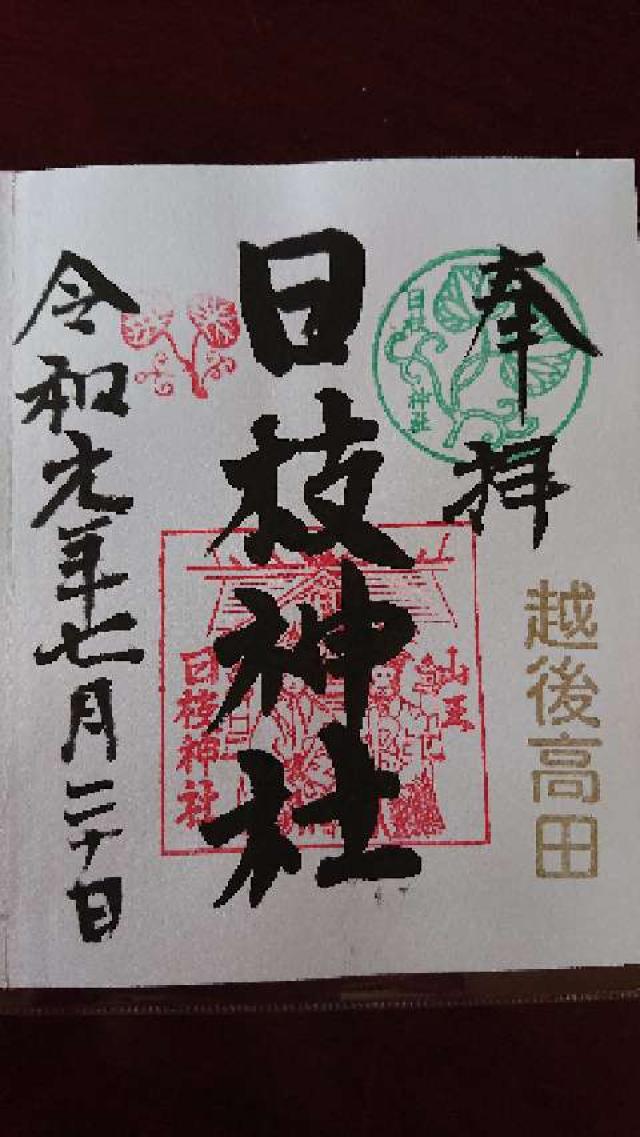 奉拝
越後高田
日枝神社
日枝神社
山王
日枝神社
令和元年七月二十日